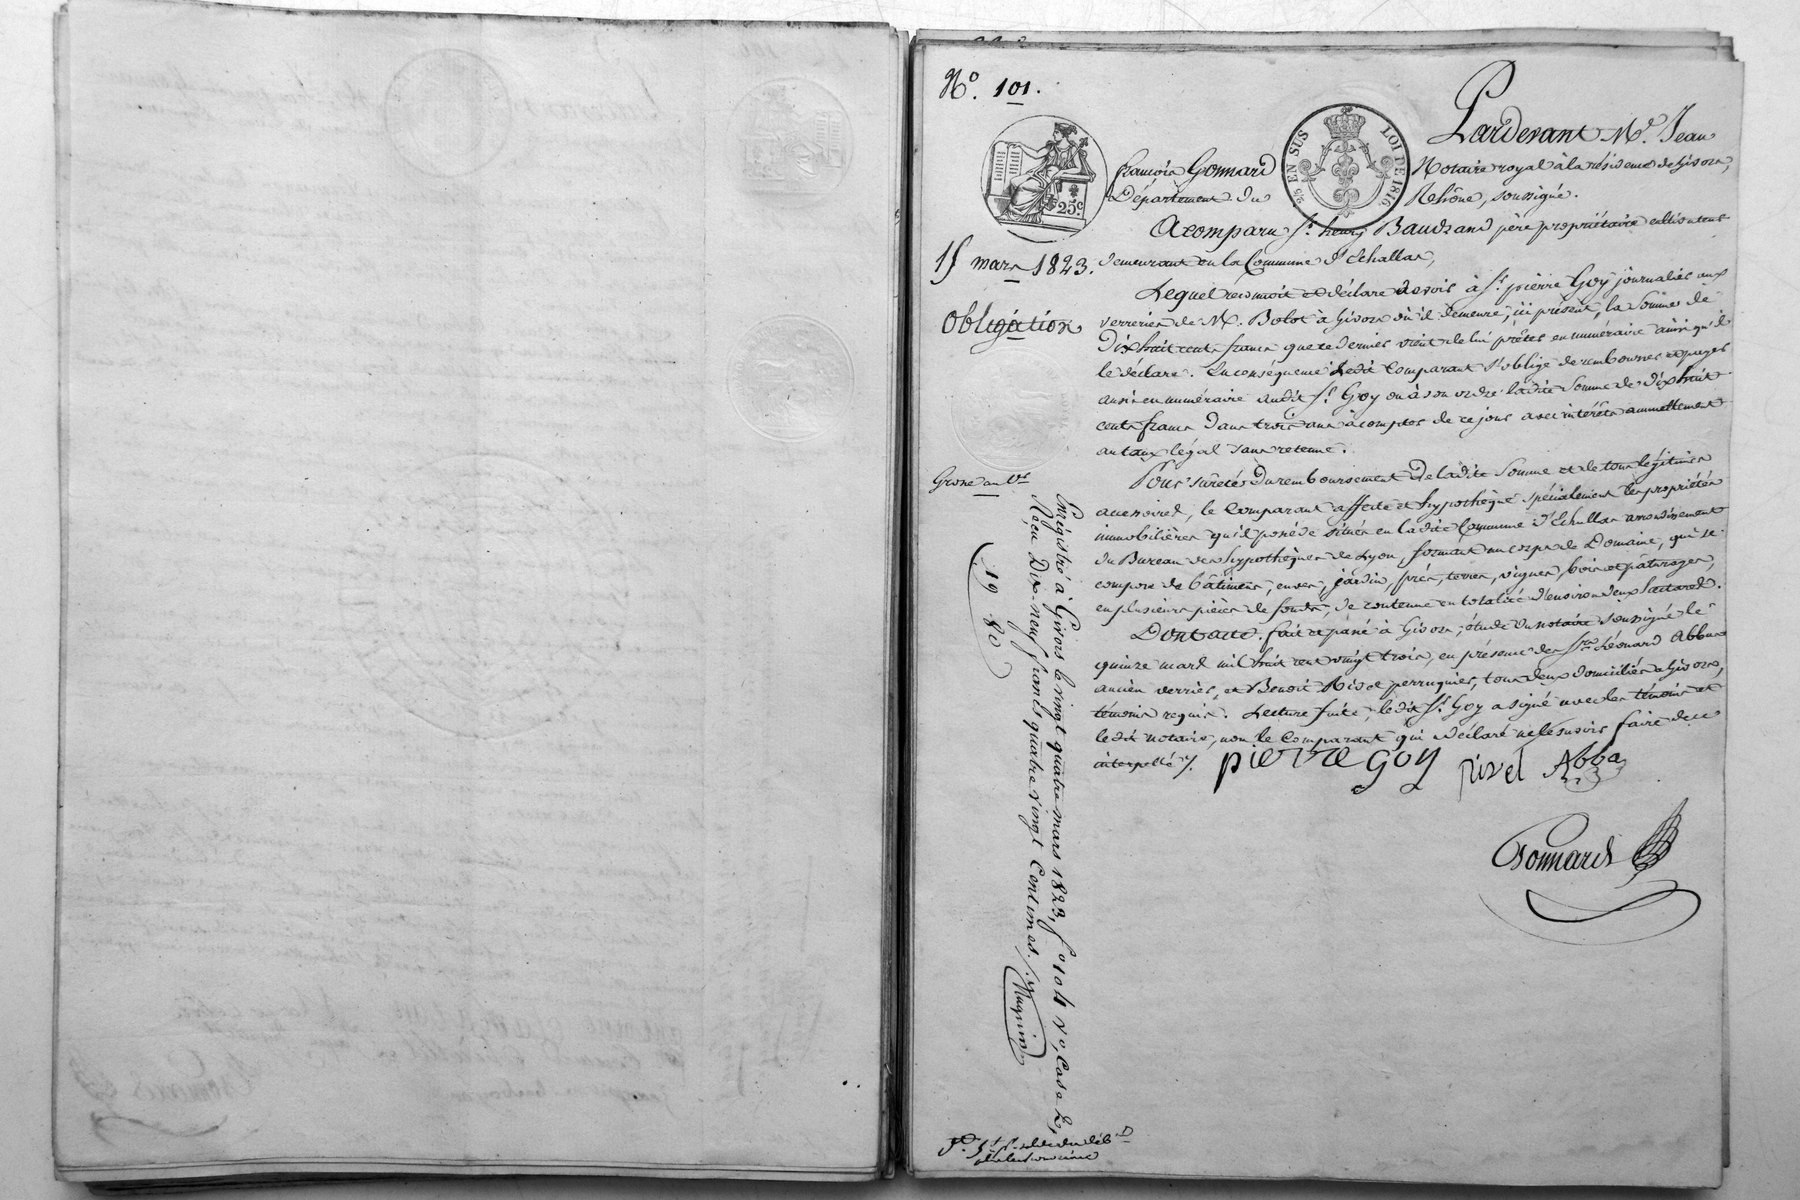 N.º 101.
25 EN SUS LOI DE 1816
25c
Pardevant M.e Jean
françois Gonnard Notaire royal à la résidence de Givors,
Département du Rhône, soussigné.
A comparu S.r henry Baudrand père propriétaire cultivateur
15 mars 1823.
demeurant en la Commune d'Echallas,
Obligation
Lequel reconnoit et déclare devoir à S.r pierre Goy journalier aux
verreries de M. Bolot à Givors où il demeure, ici présent, la Somme de
Dix huit cents francs que ce dernier vient de lui prêter en numéraire ainsi qu'il
le déclare. En conséquence ledit Comparant s'oblige de rembourser et payer
aussi en numéraire audit S.r Goy ou à son ordre ladite Somme de dix huit
cents francs dans trois ans à compter de ce jour avec intérêts annuellement
au taux légal sans retenue.
Grosse au Cr
Pour sûreté du remboursement de ladite Somme et de tous légitimes
accessoires, le Comparant affecte et hypothèque spécialement les propriétés
immobilières qu'il possède situées en ladite Commune d'Echallas arrondissement
du Bureau des hypothèques de Lyon, formant un corps de Domaine, qui se
compose de bâtiments, cuves, jardin, prés, terres, vignes, bois et pâturages,
en plusieurs pièces de fonds, de contenue en totalité d'environ deux hectares.
Dont acte. fait et passé à Givors, étude du notaire soussigné le
quinze mars mil huit cent vingt trois, en présence des S.rs Léonard Abba
ancien verrier, et Benoit Rivel perruquier, tous deux domiciliés à Givors,
témoins requis. Lecture faite, ledit S.r Goy a signé avec les témoins et
ledit notaire, non le Comparant qui a déclaré ne le savoir faire de ce
interpellé.
pierre Goy rivel Abba
Gonnard
Enregistré à Givors le vingt quatre mars 1823, f.o 104 v.o, Case 2,
Reçu Dix-neuf francs quatre vingt Centimes.
19 80